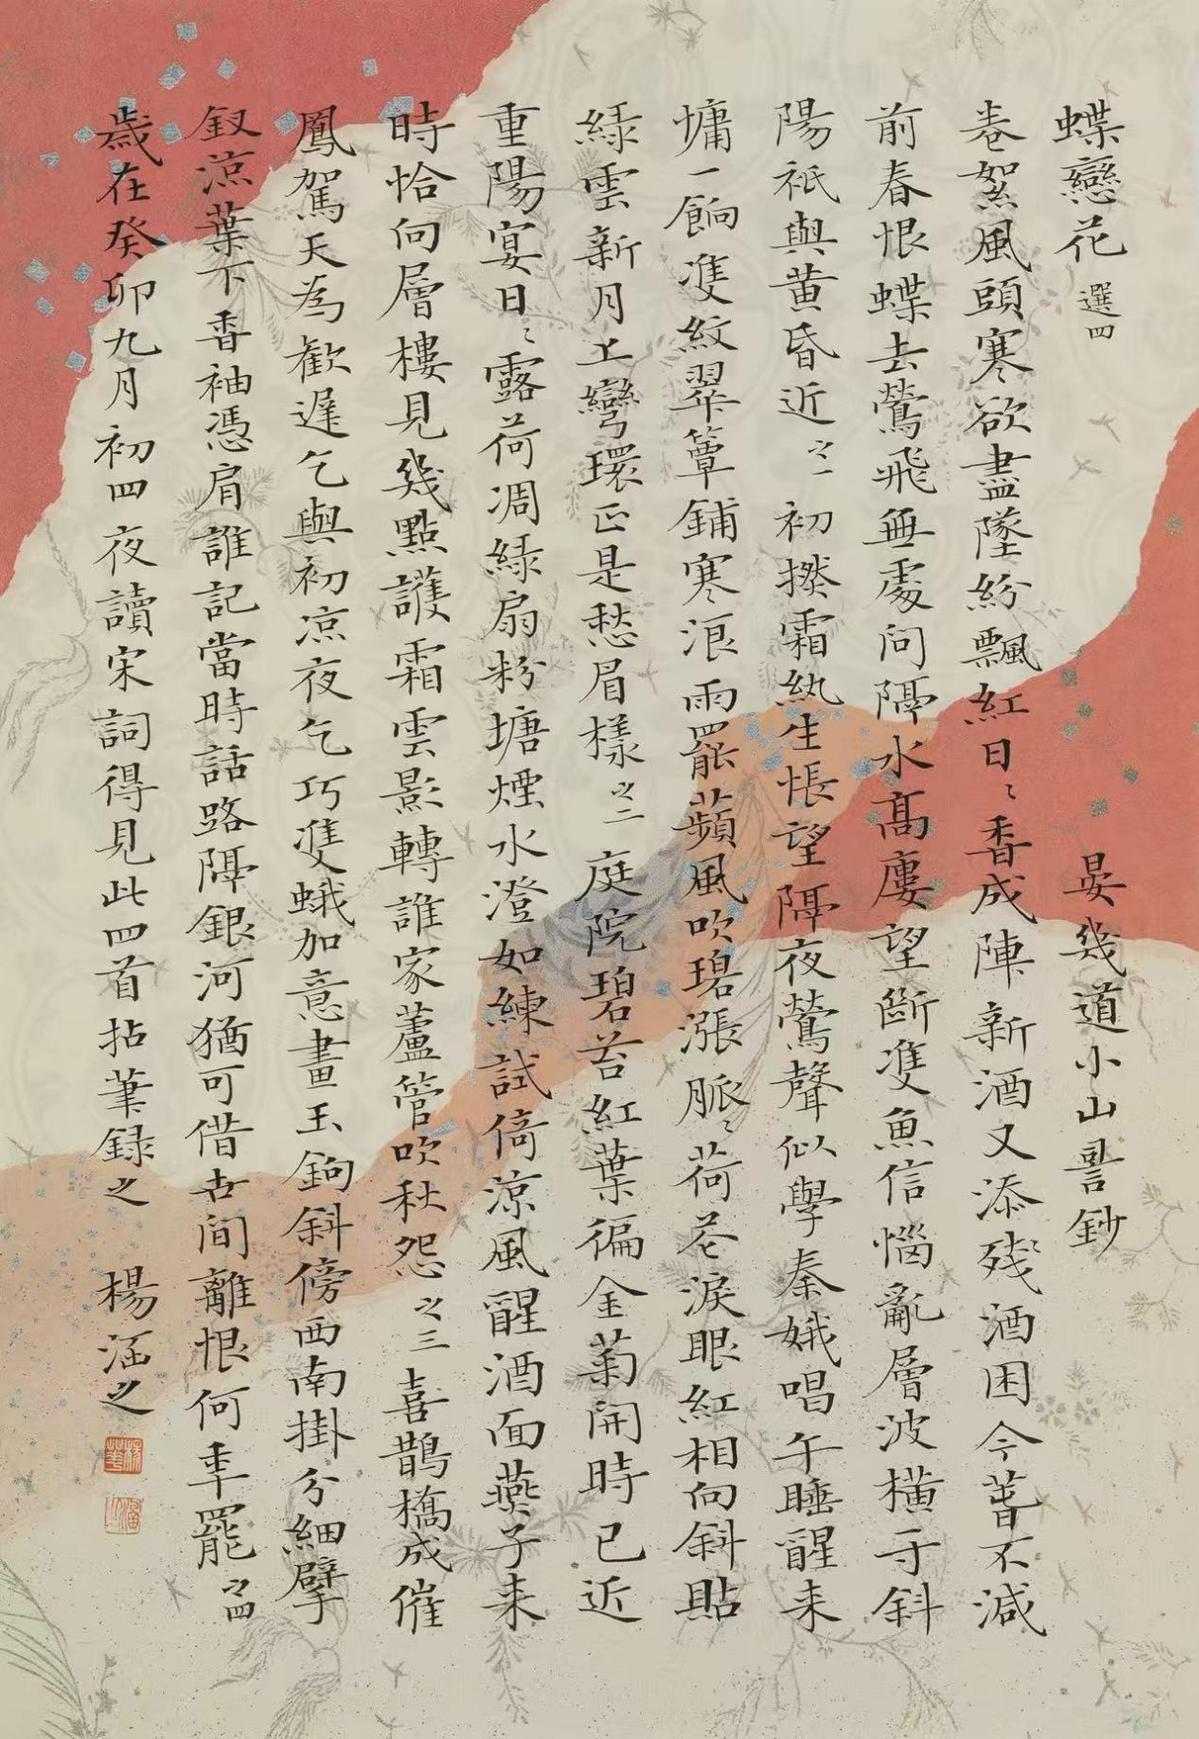 蝶戀花 選四 晏幾道小山詞鈔
卷絮風頭寒欲盡墜紛飄紅日〻香成陣新酒又添殘酒困今萅不減
前春恨蝶去鶯飛無處問隔水高廔望斷雙魚信惱亂層波橫一寸斜
陽衹與黃昏近 之一 初撚霜紈生悵望隔夜鶯聲似學秦娥唱午睡醒来
慵一餉雙紋翠簟鋪寒浪雨罷蘋風吹碧漲脈〻荷花淚眼紅相向斜貼
綠雲新月上彎環正是愁眉樣 之二 庭院碧苔紅葉徧金菊開時已近
重陽宴日〻露荷凋綠扇粉塘煙水澄如練試倚涼風醒酒面燕子来
時恰向層樓見幾點護霜雲影轉誰家蘆管吹秋怨 之三 喜鵲橋成催
鳳駕天為歡遲乞與初涼夜乞巧雙蛾加意畫玉鉤斜傍西南掛分鈿擘
釵涼葉下香袖憑肩誰記當時話路隔銀河猶可借世間離恨何年罷 之四
歲在癸卯九月初四夜讀宋詞得見此四首拈筆録之 楊涵之